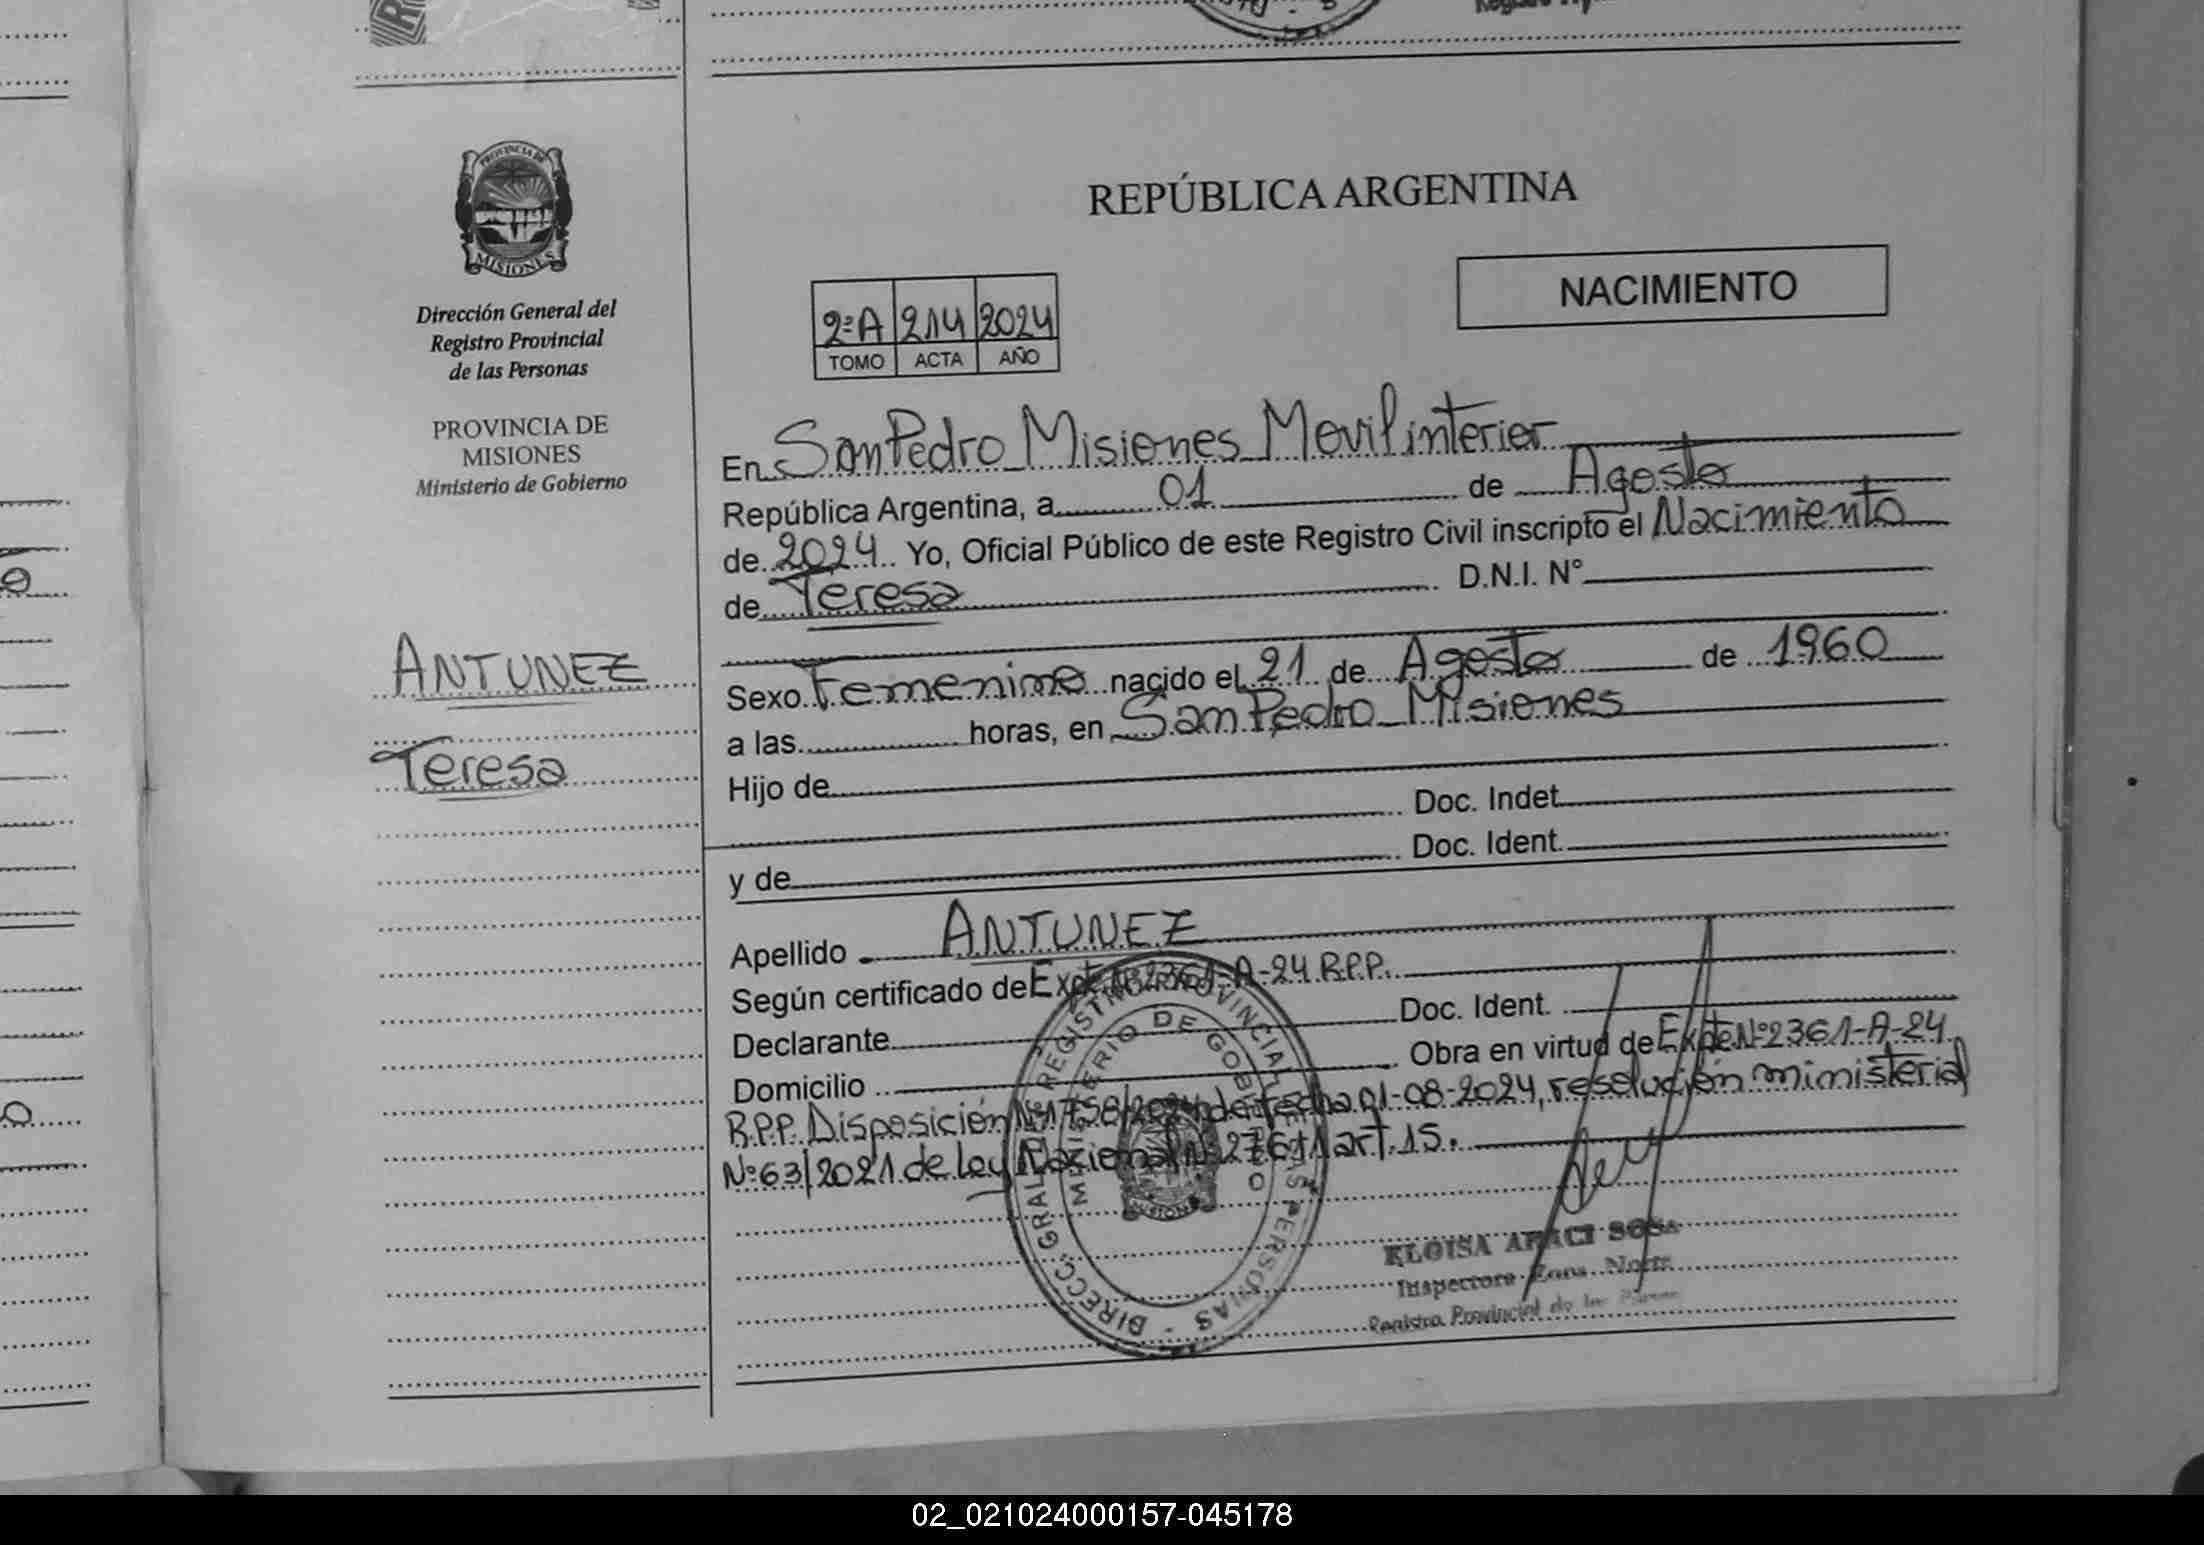 PROVINCIA DE
MISIONES
Dirección General del
Registro Provincial
de las Personas
PROVINCIA DE
MISIONES
Ministerio de Gobierno
ANTUNEZ
Teresa
REPÚBLICA ARGENTINA
NACIMIENTO
2ºA 214 2024
TOMO ACTA AÑO
En San Pedro Misiones Movil interior
República Argentina, a 01 de Agosto
de 2024 Yo, Oficial Público de este Registro Civil inscripto el Nacimiento
de Teresa D.N.I. N°
Sexo Femenino nacido el 21 de Agosto de 1960
a las horas, en San Pedro Misiones
Hijo de
Doc. Indet.
y de Doc. Ident.
Apellido ANTUNEZ
Según certificado de Expte Nº2361-A-24 R.P.P.
Declarante Doc. Ident.
Domicilio Obra en virtud de Expte Nº2361-A-24
R.P.P. Disposición Nº1758/2024 de fecha 01-08-2024, resolución ministerial
Nº63/2021 de Ley Nacional Nº27611 art. 15.
DIRECC. GRAL. REGISTRO PROVINCIAL DE LAS PERSONAS
MINISTERIO DE GOBIERNO
MISIONES
ELOISA ARACI SOSA
Inspectora Zona Norte
Registro Provincial de las
02_021024000157-045178